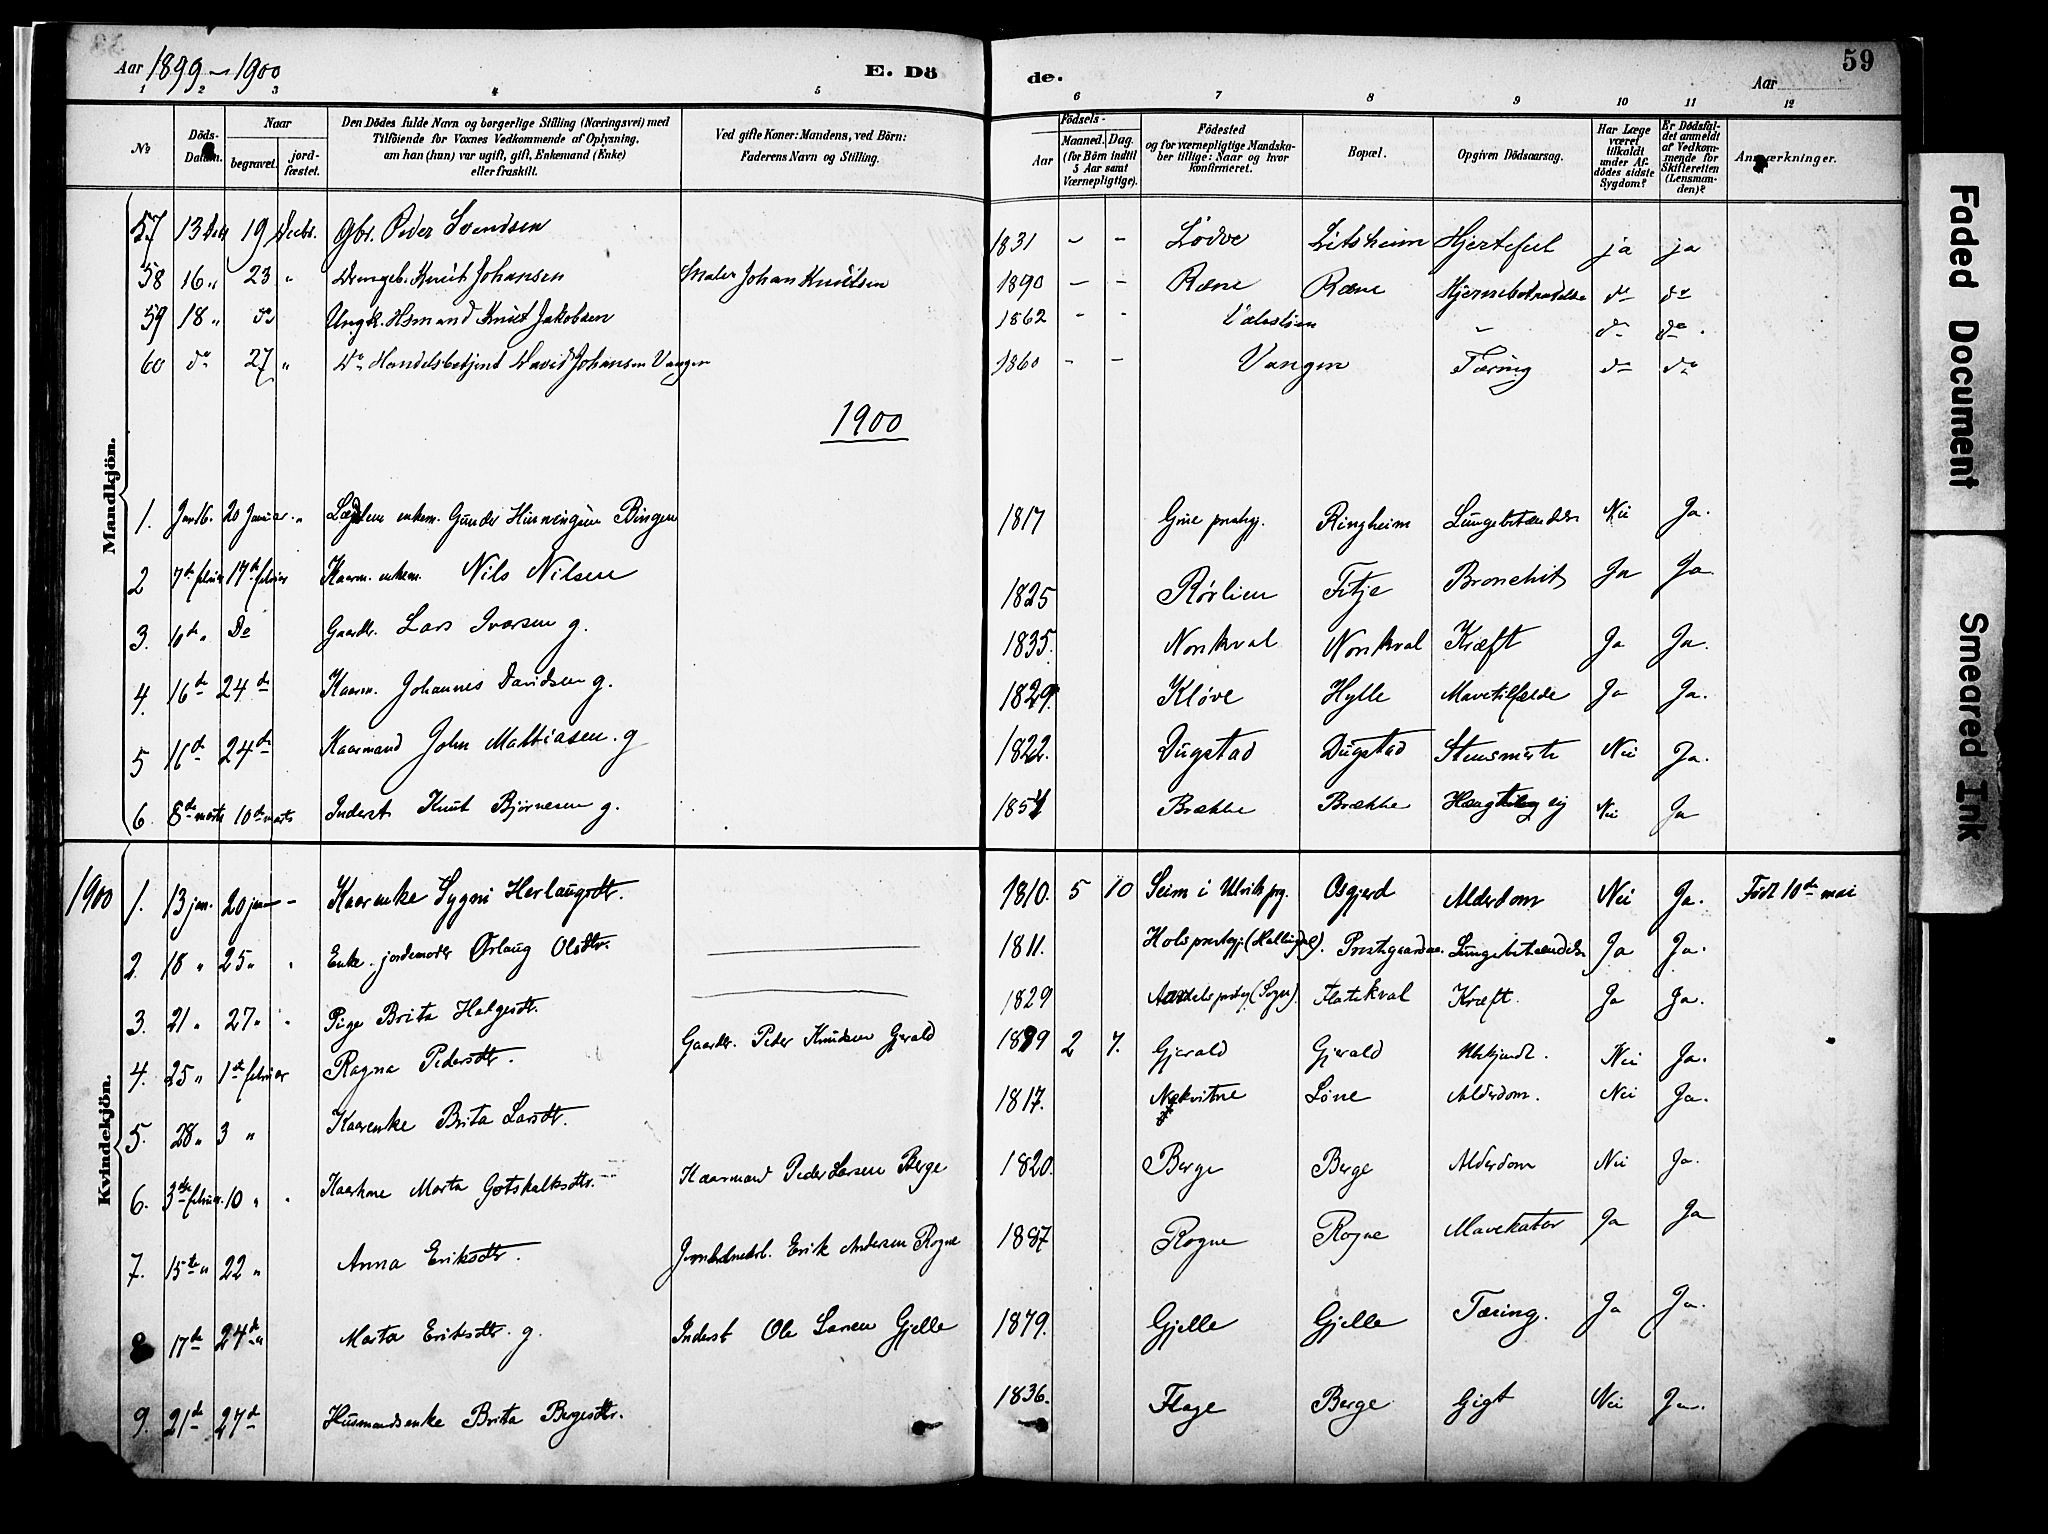 Aar 1899 – 1900
E. Dö
de.
Aar
59
1 2 3 4 5 6 7 8 9 10 11 12
No
Döds-Datum.
Naar
begravet.
jord-fæstet.
Den Dödes fulde Navn og borgerlige Stilling (Næringsvei) med
Tilföiende for Voxnes Vedkommende af Oplysning,
om han (hun) var ugift, gift, Enkemand (Enke)
eller fraskilt.
Ved gifte Koner: Mandens, ved Börn:
Faderens Navn og Stilling.
Födsels-
Aar
Maaned. Dag.
(for Börn indtil
5 Aar samt
Værnepligtige).
Födested
og for værnepligtige Mandska-
ber tillige: Naar og hvor
konfirmeret.
Bopæl.
Opgiven Dödsaarsag.
Har Læge
været
tilkaldt
under Af-
dödes sidste
Sygdom?
Er Dödsfal-
det anmeldt
af Vedkom-
mende for
Skifteretten
(Lensman-
den)?
Anmærkninger.
Mandkjön.
57 13 Debr 19 Decbr. Gbr. Peder Svendsen 1831 - - Lødve Litsheim Hjertefeil ja ja
58 16 „ 23 „ Drengeb. Knut Johansen Maler Johan Knutsen 1890 - - Ræne Ræne Hjernebetændelse do do
59 18 „ do Ungk. Hsmand Knut Jakobsen 1862 - - - do do.
60 do 27 „ Do Handelsbetjent David Johansen Vangen 1860 - - Vangen Tæring do do
1900
1. Jan 16. 20 Januar „ enkem. Gunder Bingen 1817 Ringheim Lungebetændelse Nei Ja.
2 7de februar 17de februar Kaarm. enkem. Nils Nilsen 1825 Rørlien Fitje Bronchit Ja Ja.
3. 10de „ Do Gaardbr. Lars Ivarsen g. 1835. Nonkval Nonkval Kræft Ja Ja.
4. 16de 24de Kaarm. Johannes Davidsen g. 1829. Kløve Hylle Mavetilfælde Ja Ja.
5 16de 24de Kaarmand John Mathiasen. g 1822. Dugstad Dugstad Stensmerte Nei Ja.
6. 8de marts 10de marts Inderst Knut Bjørnesen g. 185 Brække Brække Hængte sig Nei Ja
Kvindekjön.
1900 1. 13 jan. 20 jan - Kaarenke Sygni Herlaugsdtr. 1810. 5 10 Seim i Ulvik prg. Osgjerd Alderdom Nei Ja. Født 10de mai
2. 18 „ 25 „ „ Enke. jordemoder Ørlaug Olsdtr. 1811. Hols prestegj. (Hallingdal). Prestgaarden. Lungebetændelse Ja Ja.
3. 21 „ 27 „ „ Pige Brita Helgesdtr. 1829 Aardals prstgj (Sogn). Flatekval Kræft. Ja Ja.
4. 25 „ 1ste februar Ragna Pedersdtr. Gaardbr. Peder Knudsen Gjerald 1899 2 7. Gjerald Gjerald Ubekjendt. Nei Ja.
5. 28 „ 3 „ Kaarenke Brita Larsdtr. 1817. Nekvitne Løne Alderdom. Nei Ja.
6. 3de februar. 10 „ „ Kaarkone Marta Gotskalksdtr. Kaarmand Peder Larsen Berge 1820. Berge Berge Alderdom Nei Ja.
7. 15de „ 22 „ Anna Eriksdtr. Erik Andersen Rogne 1887 Rogne Rogne Mavekatar Ja Ja
8 17de 24de „ Marta Eriksdtr. g. Inderst Ole Larsen Gjelle 1879. Gjelle Gjelle Tæring. Ja Ja.
9. 21de 27de Husmandsenke Brita Bergesdtr. 1836. Flage Berge Gigt Nei Ja.
Faded Document
Smeared Ink